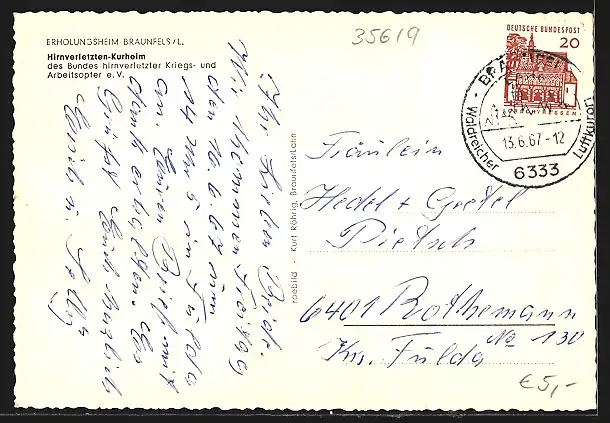 ERHOLUNGSHEIM BRAUNFELS/L.
Hirnverletzten-Kurheim
des Bundes hirnverletzter Kriegs- und
Arbeitsopfer e. V.
35619
DEUTSCHE BUNDESPOST
20
Waldreicher
Luftkurort
13.6.67-12
6333
Ihr Lieben Beide.
Wir kommen Freitag
den 16.6.67 um
14 Uhr 5 in Fulda
an. Euren Brief mit
Dank erhalten. Es
Grüßt Euch herzlich
Kurt Röhrig, Braunfels/Lahn
Fräulein
Hedel + Gretel
Pietsch
6401 Rothemann
No 130
Krs. Fulda
€ 5,-